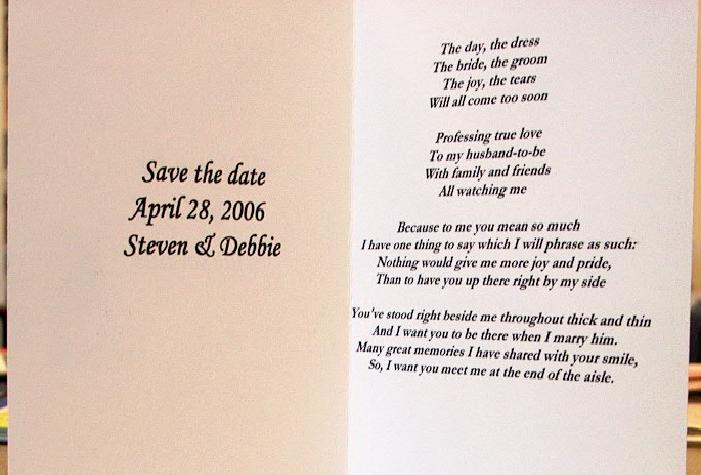 Save the date
April 28, 2006
Steven & Debbie
The day, the dress
The bride, the groom
The joy, the tears
Will all come too soon
Professing true love
To my husband-to-be
With family and friends
All watching me
Because to me you mean so much
I have one thing to say which I will phrase as such:
Nothing would give me more joy and pride,
Than to have you up there right by my side
You've stood right beside me throughout thick and thin
And I want you to be there when I marry him.
Many great memories I have shared with your smile,
So, I want you meet me at the end of the aisle.